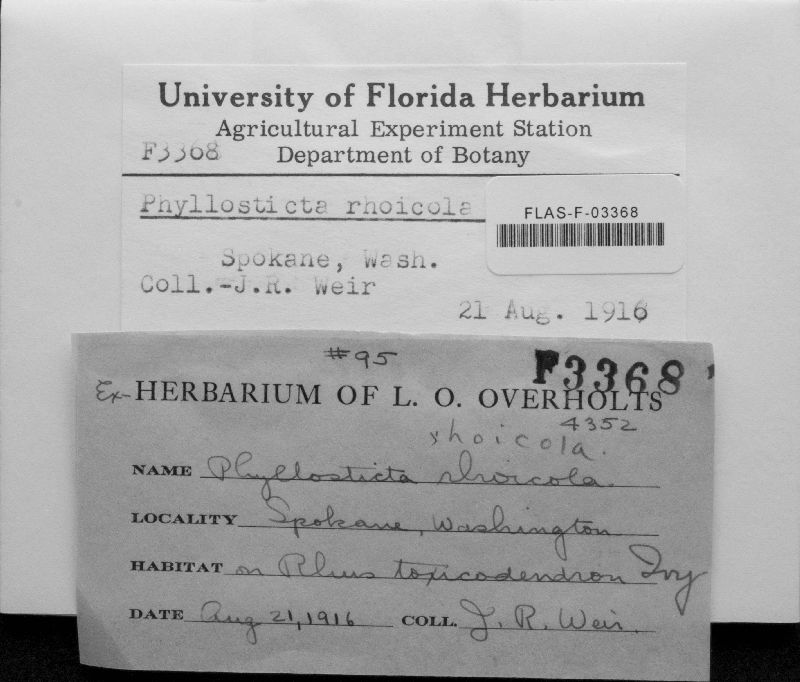 University of Florida Herbarium
Agricultural Experiment Station
F3368 Department of Botany
Phyllosticta rhoicola
FLAS-F-03368
Spokane, Wash.
Coll.-J.R. Weir
21 Aug. 1916
#95
F3368
Ex-HERBARIUM OF L. O. OVERHOLTS
4352
rhoicola.
NAME Phyllosticta rhoicola.
LOCALITY Spokane, Washington
HABITAT on Rhus toxicodendron Ivy
DATE Aug 21, 1916 COLL. J. R. Weir.